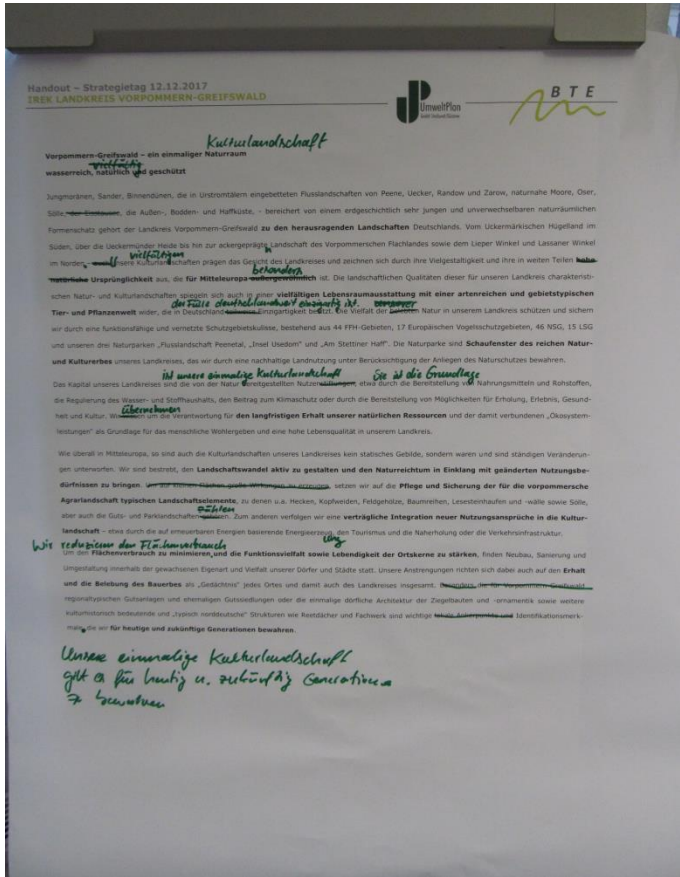 Handout – Strategietag 12.12.2017
IREK LANDKREIS VORPOMMERN-GREIFSWALD
UmweltPlan
BTE
Kulturlandschaft
Vorpommern-Greifswald – ein einmaliger Naturraum
vielfältig
wasserreich, natürlich und geschützt
Jungmoränen, Sander, Binnendünen, die in Urstromtälern eingebetteten Flusslandschaften von Peene, Uecker, Randow und Zarow, naturnahe Moore, Oser,
Sölle, die Außen-, Bodden- und Haffküste, - bereichert von einem erdgeschichtlich sehr jungen und unverwechselbaren naturräumlichen
Formenschatz gehört der Landkreis Vorpommern-Greifswald zu den herausragenden Landschaften Deutschlands. Vom Uckermärkischen Hügelland im
Süden, über die Ueckermünder Heide bis hin zur ackergeprägten Landschaft des Vorpommerschen Flachlandes sowie dem Lieper Winkel und Lassaner Winkel
vielfältigen
im Norden. unsere Kulturlandschaften prägen das Gesicht des Landkreises und zeichnen sich durch ihre Vielgestaltigkeit und ihre in weiten Teilen hohe
besonders
natürliche Ursprünglichkeit aus, die für Mitteleuropa außergewöhnlich ist. Die landschaftlichen Qualitäten dieser für unseren Landkreis charakteristi-
schen Natur- und Kulturlandschaften spiegeln sich auch in einer vielfältigen Lebensraumausstattung mit einer artenreichen und gebietstypischen
der Fülle deutschlandweit einzigartig ist. unserer
Tier- und Pflanzenwelt wider, die in Deutschland Einzigartigkeit besitzt. Die Vielfalt der Natur in unserem Landkreis schützen und sichern
wir durch eine funktionsfähige und vernetzte Schutzgebietskulisse, bestehend aus 44 FFH-Gebieten, 17 Europäischen Vogelschutzgebieten, 46 NSG, 15 LSG
und unseren drei Naturparken „Flusslandschaft Peenetal, „Insel Usedom" und „Am Stettiner Haff". Die Naturparke sind Schaufenster des reichen Natur-
und Kulturerbes unseres Landkreises, das wir durch eine nachhaltige Landnutzung unter Berücksichtigung der Anliegen des Naturschutzes bewahren.
ist unsere einmalige Kulturlandschaft Sie ist die Grundlage
Das Kapital unseres Landkreises sind die von der Natur bereitgestellten Nutzenstiftungen, etwa durch die Bereitstellung von Nahrungsmitteln und Rohstoffen,
die Regulierung des Wasser- und Stoffhaushalts, den Beitrag zum Klimaschutz oder durch die Bereitstellung von Möglichkeiten für Erholung, Erlebnis, Gesund-
übernehmen
heit und Kultur. Wir um die Verantwortung für den langfristigen Erhalt unserer natürlichen Ressourcen und der damit verbundenen „Ökosystem-
leistungen" als Grundlage für das menschliche Wohlergehen und eine hohe Lebensqualität in unserem Landkreis.
Wie überall in Mitteleuropa, so sind auch die Kulturlandschaften unseres Landkreises kein statisches Gebilde, sondern waren und sind ständigen Veränderun-
gen unterworfen. Wir sind bestrebt, den Landschaftswandel aktiv zu gestalten und den Naturreichtum in Einklang mit geänderten Nutzungsbe-
dürfnissen zu bringen. Um auf kleinen Flächen große Wirkungen zu erzeugen, setzen wir auf die Pflege und Sicherung der für die vorpommersche
Agrarlandschaft typischen Landschaftselemente, zu denen u.a. Hecken, Kopfweiden, Feldgehölze, Baumreihen, Lesesteinhaufen und -wälle sowie Sölle,
zählen
aber auch die Guts- und Parklandschaften gehören. Zum anderen verfolgen wir eine verträgliche Integration neuer Nutzungsansprüche in die Kultur-
landschaft – etwa durch die auf erneuerbaren Energien basierende Energieerzeug. den Tourismus und die Naherholung oder die Verkehrsinfrastruktur.
ung
Wir reduzieren den Flächenverbrauch
Um den Flächenverbrauch zu minimieren und die Funktionsvielfalt sowie Lebendigkeit der Ortskerne zu stärken, finden Neubau, Sanierung und
Umgestaltung innerhalb der gewachsenen Eigenart und Vielfalt unserer Dörfer und Städte statt. Unsere Anstrengungen richten sich dabei auch auf den Erhalt
und die Belebung des Bauerbes als „Gedächtnis" jedes Ortes und damit auch des Landkreises insgesamt. Besonders die für Vorpommern-Greifswald
regionaltypischen Gutsanlagen und ehemaligen Gutssiedlungen oder die einmalige dörfliche Architektur der Ziegelbauten und -ornamentik sowie weitere
kulturhistorisch bedeutende und „typisch norddeutsche" Strukturen wie Reetdächer und Fachwerk sind wichtige lokale Ankerpunkte und Identifikationsmerk-
male, die wir für heutige und zukünftige Generationen bewahren.
Unsere einmalige Kulturlandschaft
gilt es für heutig u. zukünftig Generationen
zu bewahren